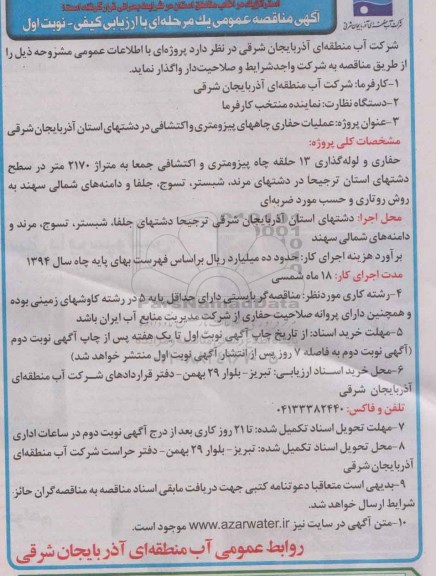 آگهی مناقصه عمومی یك مرحله‌ای با ارزیابی کیفی - نوبت اول
شرکت آب منطقه‌ای آذربایجان شرقی در نظر دارد پروژه‌ای با اطلاعات عمومی مشروحه ذیل را
از طریق مناقصه به شرکت واجدشرایط و صلاحیت‌دار واگذار نماید.
۱-کارفرما: شرکت آب منطقه‌ای آذربایجان شرقی
۲-دستگاه نظارت: نماینده منتخب کارفرما
۳-عنوان پروژه: عملیات حفاری چاههای پیزومتری و اکتشافی در دشتهای استان آذربایجان شرقی
مشخصات کلی پروژه:
حفاری و لوله‌گذاری ۱۳ حلقه چاه پیزومتری و اکتشافی جمعا به متراژ ۲۱۷۰ متر در سطح
دشتهای استان ترجیحا در دشتهای مرند، شبستر، تسوج، جلفا و دامنه‌های شمالی سهند به
روش روتاری و حسب مورد ضربه‌ای
محل اجرا: دشتهای استان آذربایجان شرقی ترجیحا دشتهای جلفا، شبستر، تسوج، مرند و
دامنه‌های شمالی سهند
برآورد هزینه اجرای کار: حدود ده میلیارد ریال براساس فهرست بهای پایه چاه سال ۱۳۹۴
مدت اجرای کار: ۱۸ ماه شمسی
۴-رشته کاری موردنظر: مناقصه‌گر بایستی دارای حداقل پایه ۵ در رشته کاوشهای زمینی بوده
و همچنین دارای پروانه صلاحیت حفاری از شرکت مدیریت منابع آب ایران باشد
۵-مهلت خرید اسناد: از تاریخ چاپ آگهی نوبت اول تا یک هفته پس از چاپ آگهی نوبت دوم
(آگهی نوبت دوم به فاصله ۷ روز پس از انتشار آگهی نوبت اول منتشر خواهد شد)
۶-محل خرید اسناد ارزیابی: تبریز- بلوار ۲۹ بهمن- دفتر قراردادهای شرکت آب منطقه‌ای
آذربایجان شرقی
تلفن و فاکس: ۰۴۱۳۳۳۸۲۴۴۰
۷-مهلت تحویل اسناد تکمیل شده: تا ۲۱ روز کاری بعد از درج آگهی نوبت دوم در ساعات اداری
۸-محل تحویل اسناد تکمیل شده: تبریز- بلوار ۲۹ بهمن- دفتر حراست شرکت آب منطقه‌ای
آذربایجان شرقی
۹-بدیهی است متعاقبا دعوتنامه کتبی جهت دریافت مابقی اسناد مناقصه به مناقصه‌گران حائز
شرایط ارسال خواهد شد.
۱۰-متن آگهی در سایت نیز www.azarwater.ir موجود است.
روابط عمومی آب منطقه‌ای آذربایجان شرقی